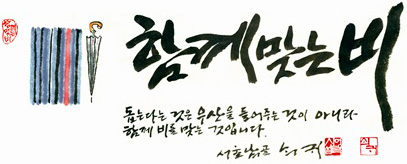 함께 맞는 비
돕는다는 것은 우산을 들어주는 것이 아니라
함께 비를 맞는 것입니다.